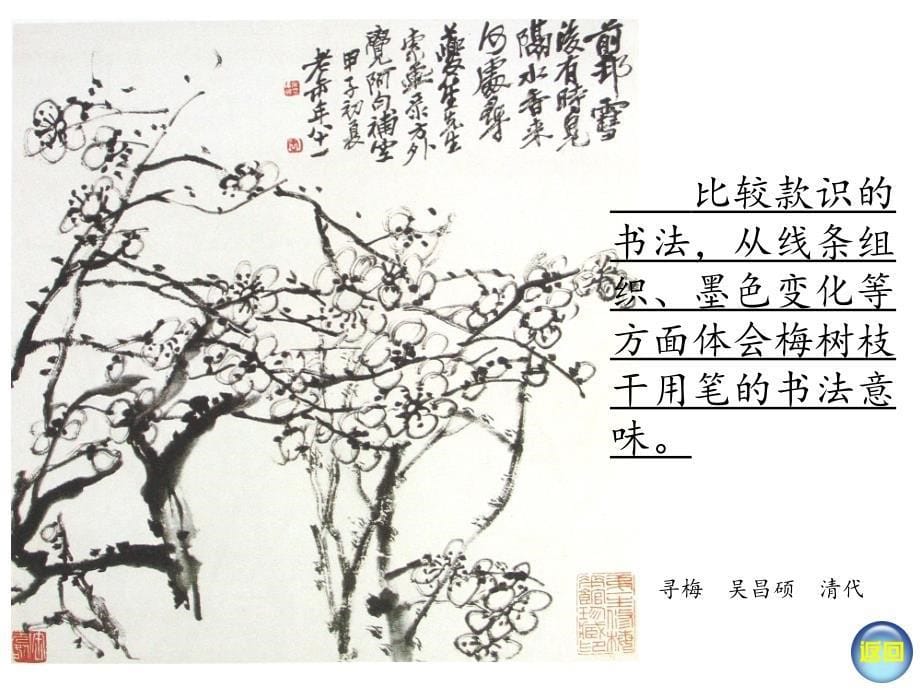 前邨雪
後有時見
隔水香来
何處尋
先生
方外
覺阿句補空
甲子初夏
老缶年八十一
比较款识的
书法，从线条组
织、墨色变化等
方面体会梅树枝
干用笔的书法意
味。
寻梅 吴昌硕 清代
返回